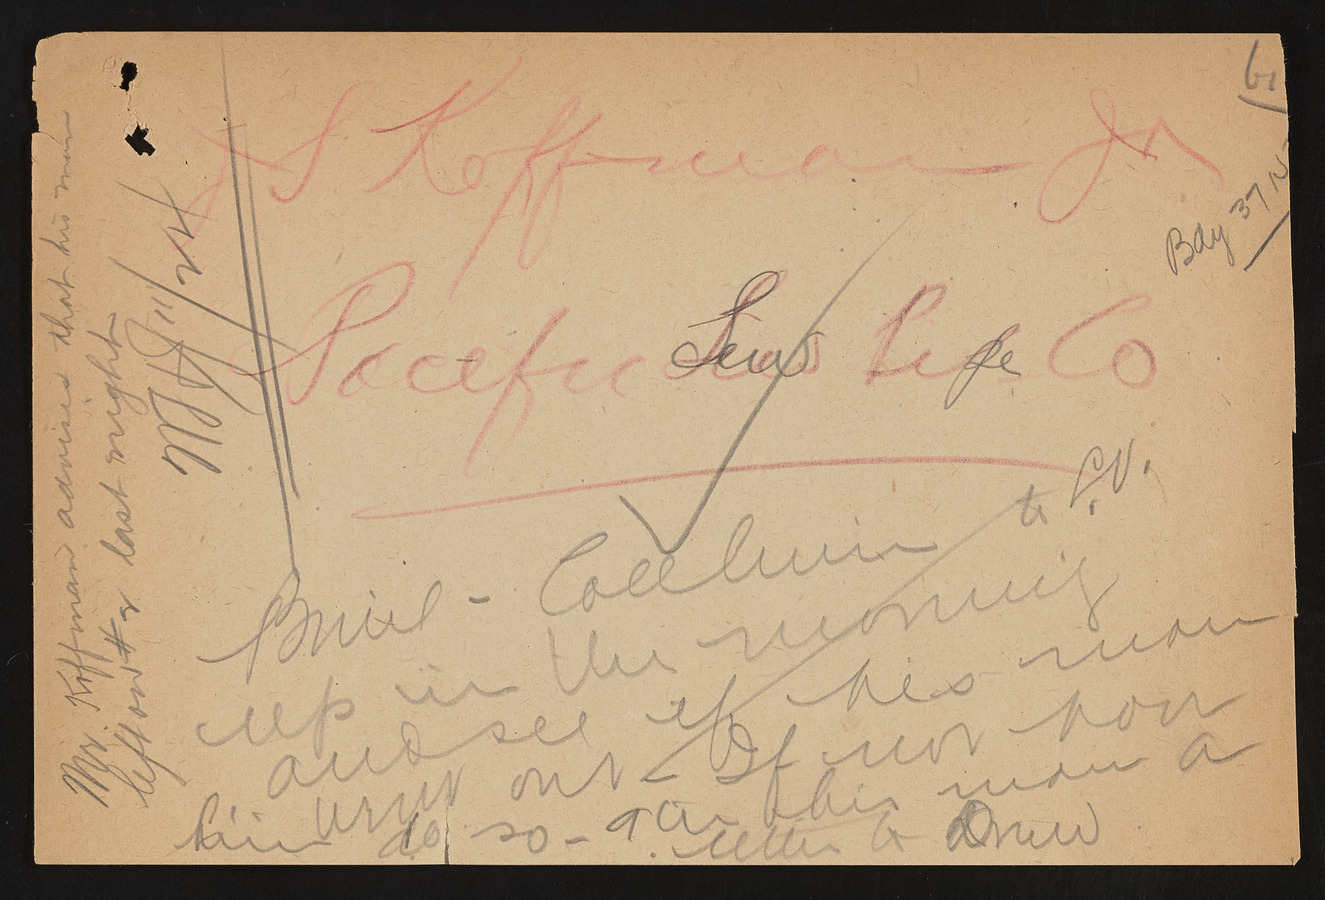 S Koffman Jr
Pacific Sew Pipe Co
Bay 37
61
to P.V.
Brief - Call him
up in the morning
and see if his man
went out - If not have
him do so - Give his man a
letter to Drew
Mr. Koffman advises that his man
left on #2 last night